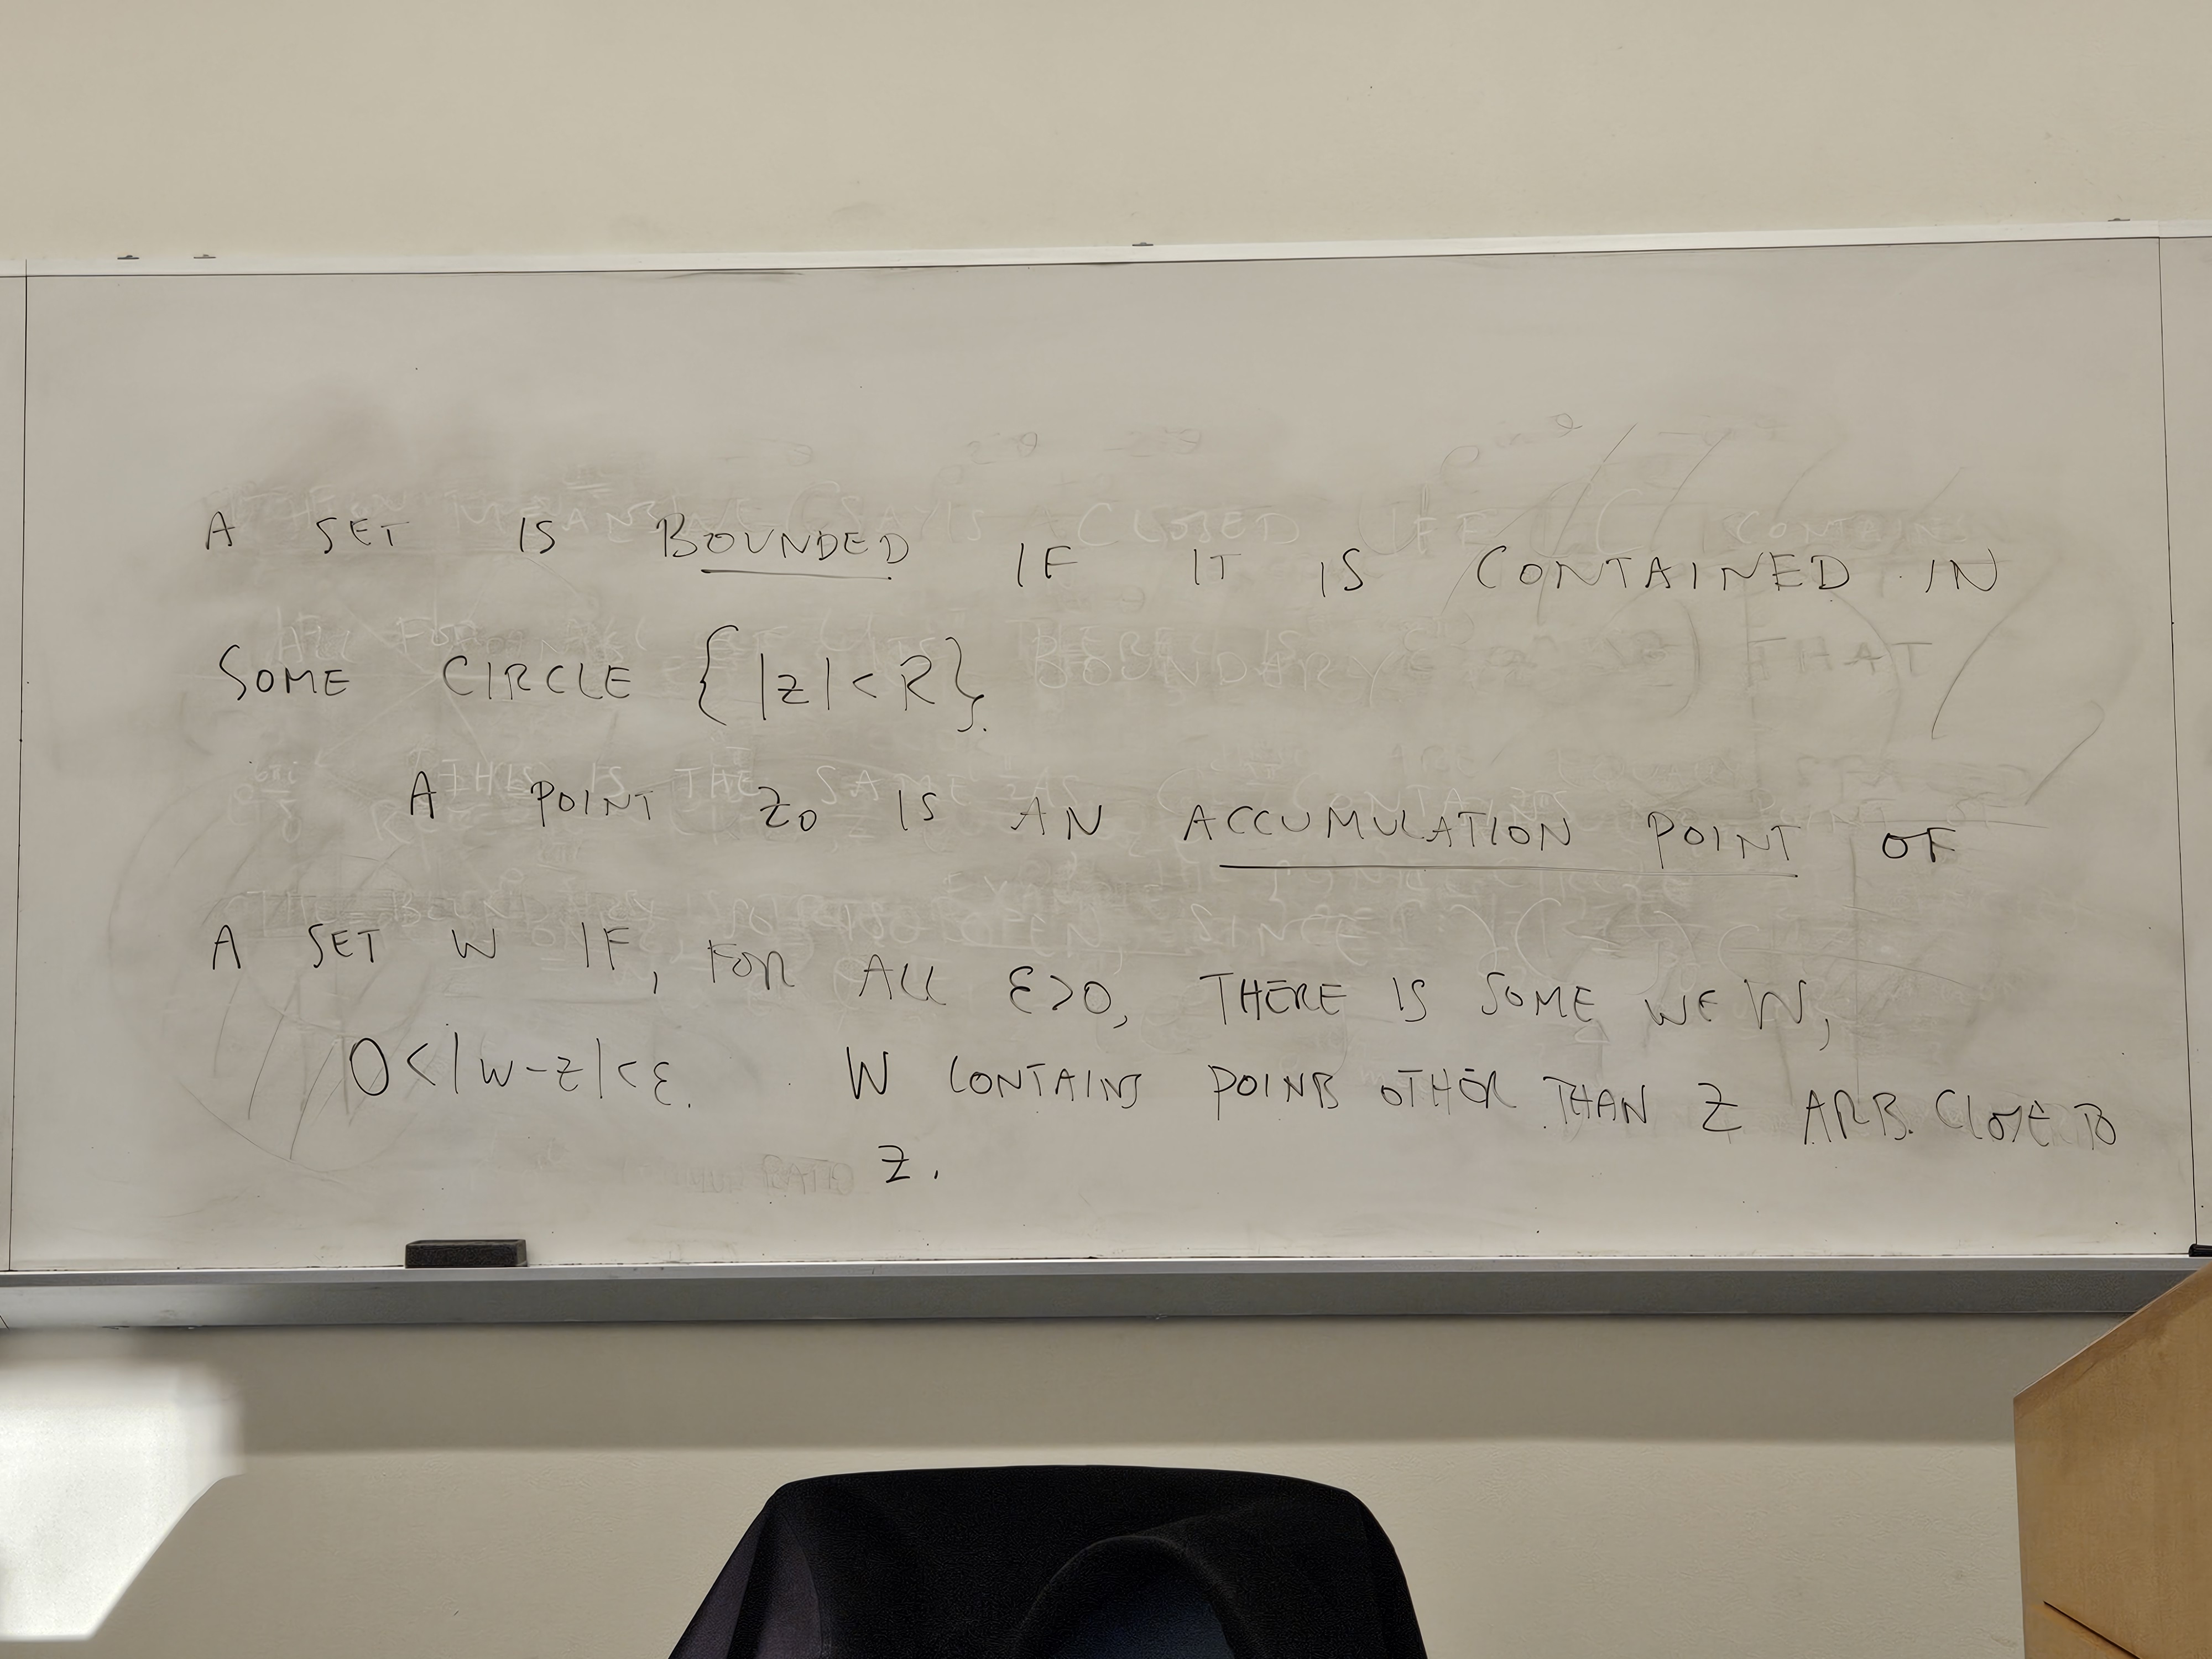 A SET IS BOUNDED IF IT IS CONTAINED IN
SOME CIRCLE { |z| < R }.
A POINT z₀ IS AN ACCUMULATION POINT OF
A SET W IF, FOR ALL ε>0, THERE IS SOME w∈W,
0<|w-z|<ε. W CONTAINS POINTS OTHER THAN z ARB. CLOSE TO
z.